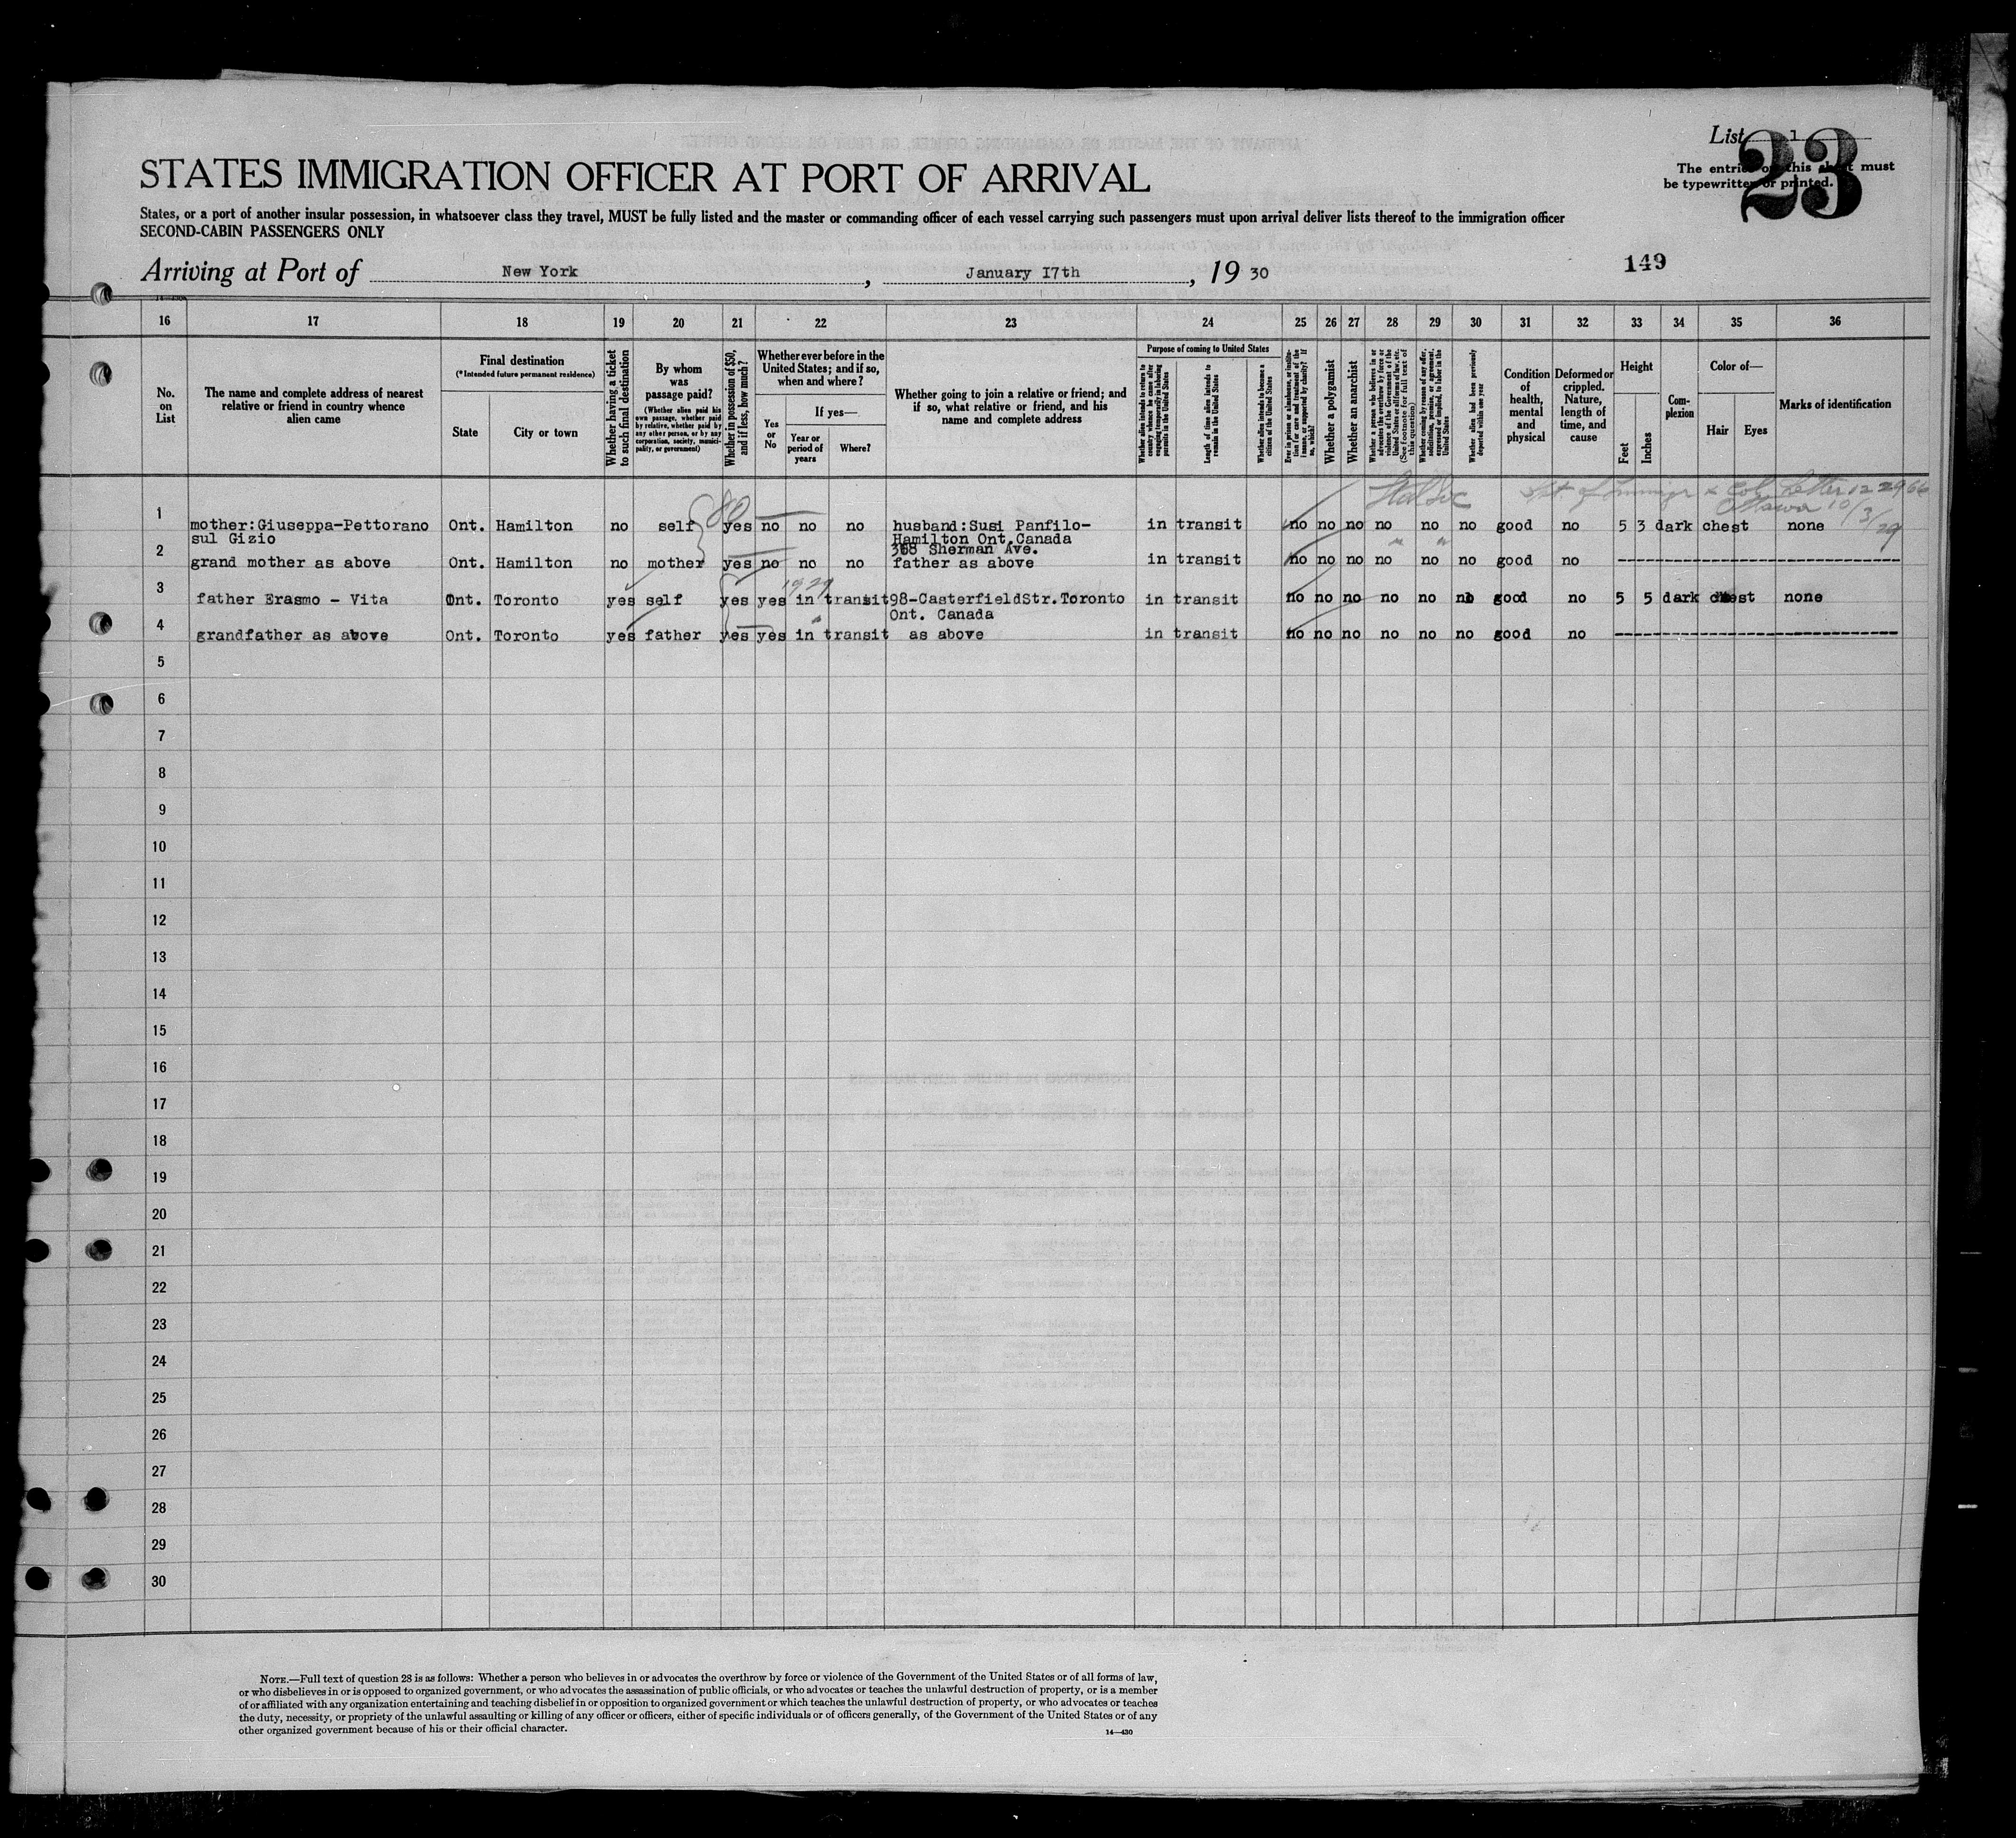 List 1
23
The entries on this sheet must
be typewritten or printed.
STATES IMMIGRATION OFFICER AT PORT OF ARRIVAL
States, or a port of another insular possession, in whatsoever class they travel, MUST be fully listed and the master or commanding officer of each vessel carrying such passengers must upon arrival deliver lists thereof to the immigration officer
SECOND-CABIN PASSENGERS ONLY
Arriving at Port of New York, January 17th, 19 30
149
16 17 18 19 20 21 22 23 24 25 26 27 28 29 30 31 32 33 34 35 36
No. on List
The name and complete address of nearest relative or friend in country whence alien came
Final destination
(*Intended future permanent residence)
State
City or town
Whether having a ticket to such final destination
By whom was passage paid?
(Whether alien paid his own passage, whether paid by relative, whether paid by any other person, or by any corporation, society, municipality, or government)
Whether in possession of $50, and if less, how much?
Whether ever before in the United States; and if so, when and where?
Yes or No
If yes—
Year or period of years
Where?
Whether going to join a relative or friend; and if so, what relative or friend, and his name and complete address
Purpose of coming to United States
Whether alien intends to return to country whence he came after engaging temporarily in laboring pursuits in the United States
Length of time alien intends to remain in the United States
Whether alien intends to become a citizen of the United States
Ever in prison or almshouse, or institution for care and treatment of the insane, or supported by charity? If so, which?
Whether a polygamist
Whether an anarchist
Whether a person who believes in or advocates the overthrow by force or violence of the Government of the United States or all forms of law, etc. (See footnote for full text of this question)
Whether coming by reason of any offer, solicitation, promise, or agreement, expressed or implied, to labor in the United States
Whether alien had been previously deported within one year
Condition of health, mental and physical
Deformed or crippled. Nature, length of time, and cause
Height
Feet
Inches
Complexion
Color of—
Hair
Eyes
Marks of identification
1
80
Ottawa 10/3/29
mother:Giuseppa-Pettorano Ont. Hamilton no self yes no no no husband:Susi Panfilo- in transit no no no no no no good no 5 3 dark chest none
sul Gizio Hamilton Ont.Canada
2 368 Sherman Ave.
grand mother as above Ont. Hamilton no mother yes no no no father as above in transit no no no no no no good no
3
1929
father Erasmo - Vita Ont. Toronto yes self yes yes in transit 98-CasterfieldStr.Toronto in transit no no no no no no good no 5 5 dark chest none
4 Ont. Canada
grandfather as above Ont. Toronto yes father yes yes in transit as above in transit no no no no no no good no
5
6
7
8
9
10
11
12
13
14
15
16
17
18
19
20
21
22
23
24
25
26
27
28
29
30
NOTE.—Full text of question 28 is as follows: Whether a person who believes in or advocates the overthrow by force or violence of the Government of the United States or of all forms of law,
or who disbelieves in or is opposed to organized government, or who advocates the assassination of public officials, or who advocates or teaches the unlawful destruction of property, or is a member
of or affiliated with any organization entertaining and teaching disbelief in or opposition to organized government or which teaches the unlawful destruction of property, or who advocates or teaches
the duty, necessity, or propriety of the unlawful assaulting or killing of any officer or officers, either of specific individuals or of officers generally, of the Government of the United States or of any
other organized government because of his or their official character.
14—430